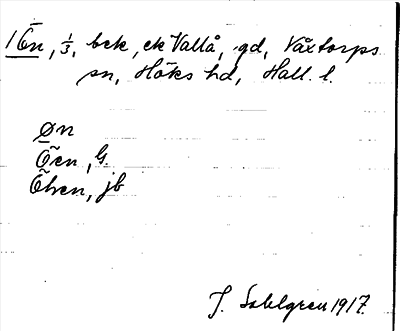 1 Ön, 1/3, bck, ek Vallå, gd, Våxtorps
sn, Höks hd, Hall. l.
Øn
Öen, G.
Öhren, jb
J. Sahlgren 1917.